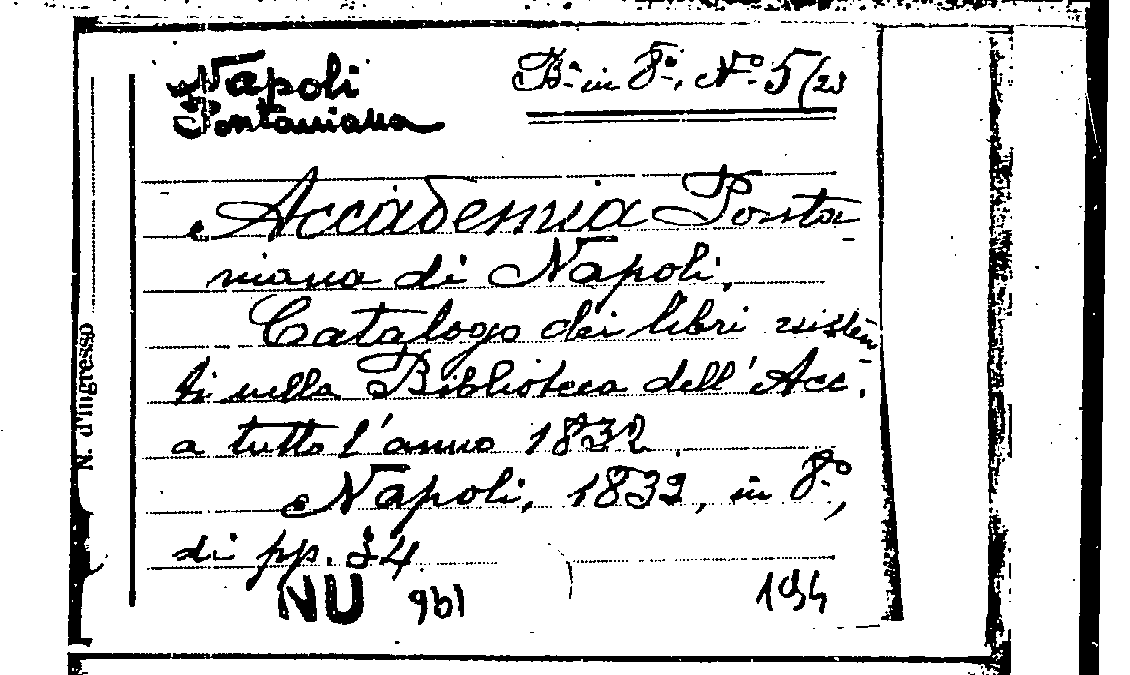 Napoli
Pontaniana
Bª in 8º, Nº 5/23
Accademia Ponta
niana di Napoli.
Catalogo dei libri esisten
ti nella Biblioteca dell'Acc.
a tutto l'anno 1832.
Napoli, 1832, in 8º,
di pp. 34
NU 961 194
N. d'ingresso